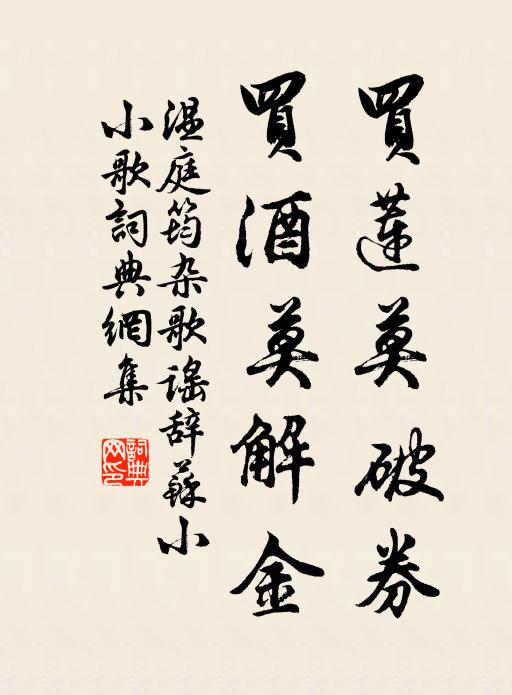 買蓮莫破券
買酒莫解金
温庭筠杂歌謡辞蘇小
小歌詞典網集
詞典網印